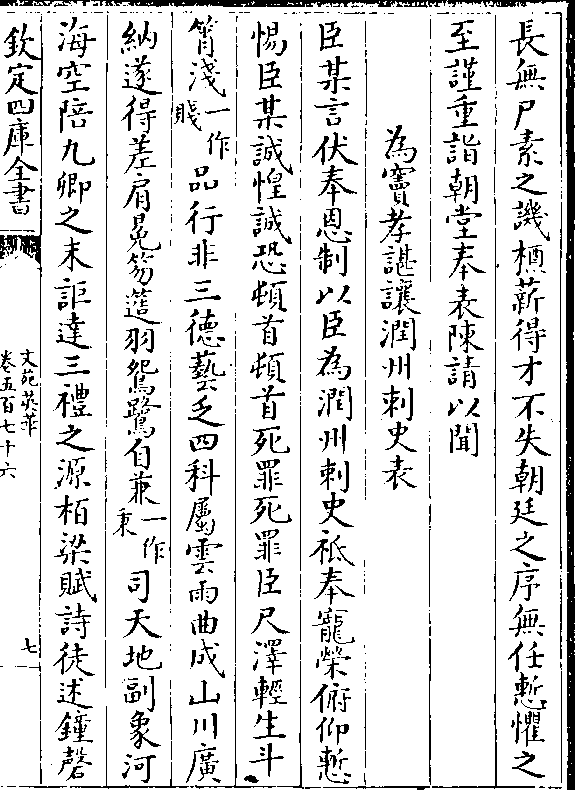 長無尸素之譏槱薪得才不失朝廷之序無任慙懼之
至謹重詣朝堂奉表陳請以聞
為竇孝諶讓潤州刺史表
臣某言伏奉恩制以臣為潤州刺史祗奉寵榮俯仰慙
惕臣某誠惶誠恐頓首頓首死罪死罪臣尺澤輕生斗
筲淺一作賤品行非三德藝乏四科屬雲雨曲成山川廣
納遂得差肩冕笏簉羽鴛鷺自兼一作秉司天地副象河
海空陪九卿之末詎達三禮之源栢梁賦詩徒述鐘磬
欽定四庫全書
文苑英華
卷五百七十六
七